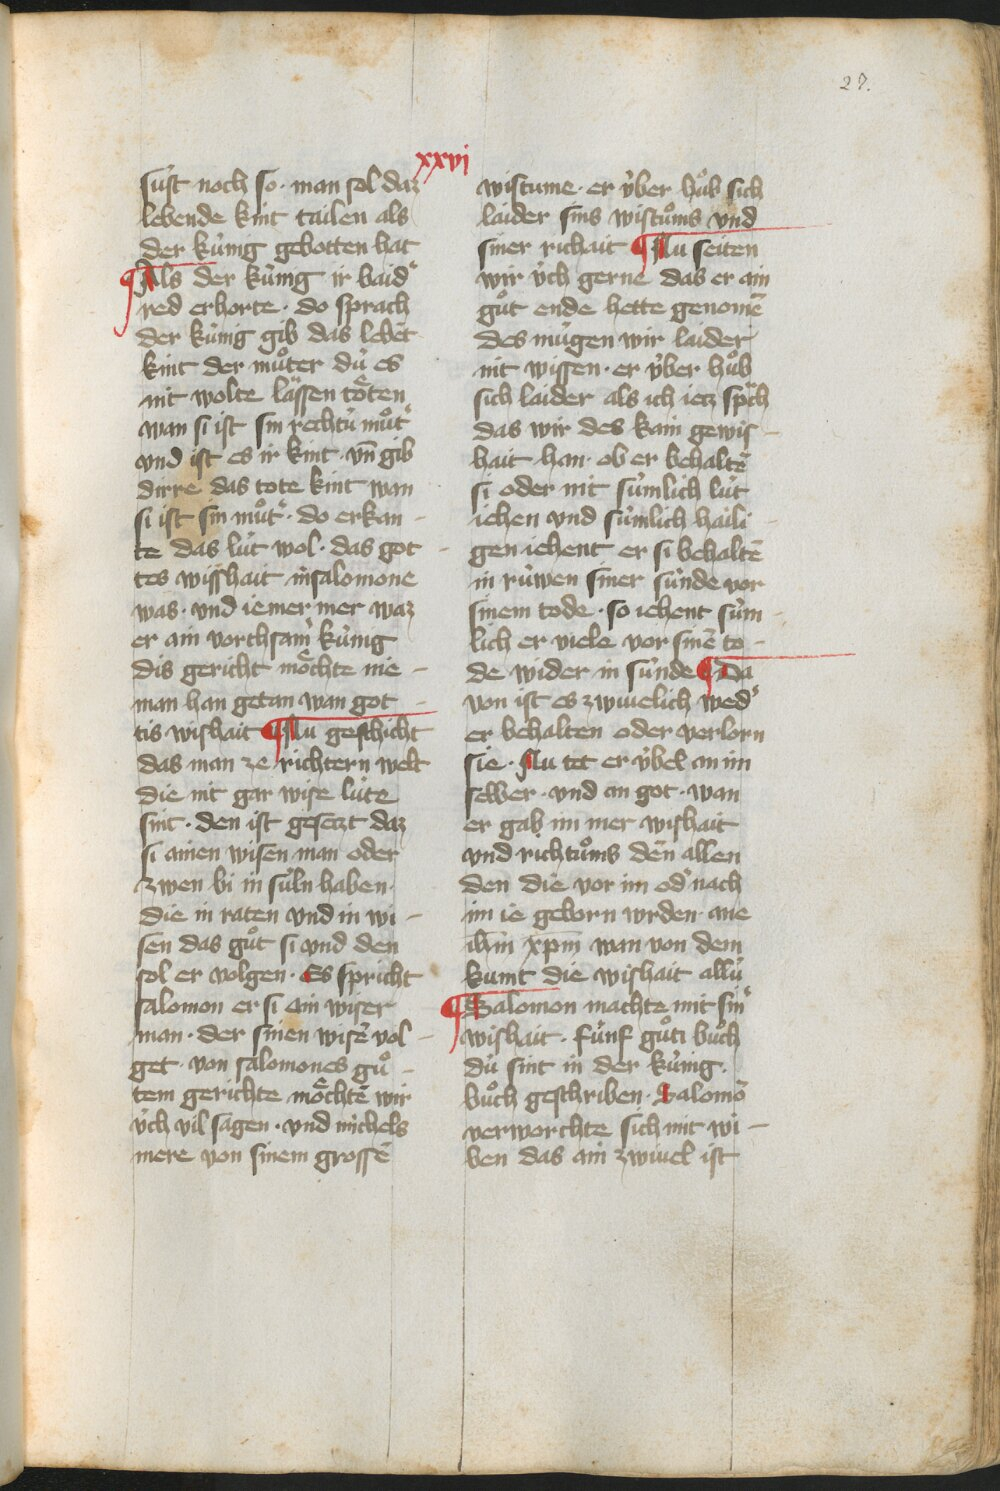 27.
xxvi
sust noch so · man sol daz
lebende kint tailen als
der kúnig gebotten hat
¶ Als der kúnig ir baid'
red erhorte · do sprach
der kúnig gib das lebēt
kint der mů̊ter dú es
nit wolte lässen tȍten
wan si ist sin rechtú můt'
vnd ist es ir kint · vn̄ gib
dirre das tote kint wan
si ist sin můt' · do erkan -
te das lút wol · das got -
tes wisshait in salomone
was · vnd iemer mer waz
er ain vorchsam' kúnig
dis gericht mȍchte nie -
man han getan wan got -
tis wishait ¶ Nu geschicht
das man ze richtern welt
die nit gar wise lúte
sint · den ist gesetzt daz
si ainen wisen man oder
zwen bi in súln haben ·
die in raten vnd in wi -
sen das gůt si vnd den
sol er volgen · Es spricht
salomon er si ain wiser
man · der sinen wisē vol -
get · von salomones gů -
tem gerichte mȍchtē wir
úch vil sagen · vnd michels
mere von sinem grossē
wistume · er v́ber hůb sich
laider sins wistůms vnd
siner richait ¶ Nu seiten
wir úch gerne das er ain
gůt ende hette genomē
des múgen wir laider
nit wissen · er v́ber hůb
sich laider als ich ietz sp̃ch
das wir des kain gewis -
hait han · ob er behaltē
si oder nit súmlich lút
iehen vnd súmlich haili -
gen iehent er si behaltē
in rúwen siner súnde vor
sinem tode · so iehent súm -
lich er viele vor sinē to -
de wider in súnde ¶ Da
von ist es zwiuelich wed'
er behalten oder verlorn
sie · Nu tet er v́bel an im
selber · vnd an got · wan
er gab im mer wishait
vnd richtůms den allen
den die vor im od' nach
im ie geborn wrden · ane
ih̄m xp̄m wan von dem
kumt die wishait allú
¶ Salomon machte mit sin'
wishait · fúnf gůti bůch
dú sint in der kúnig ·
bůch geschriben · Salomō
verworchte sich mit wi -
ben das ain zwiuel ist